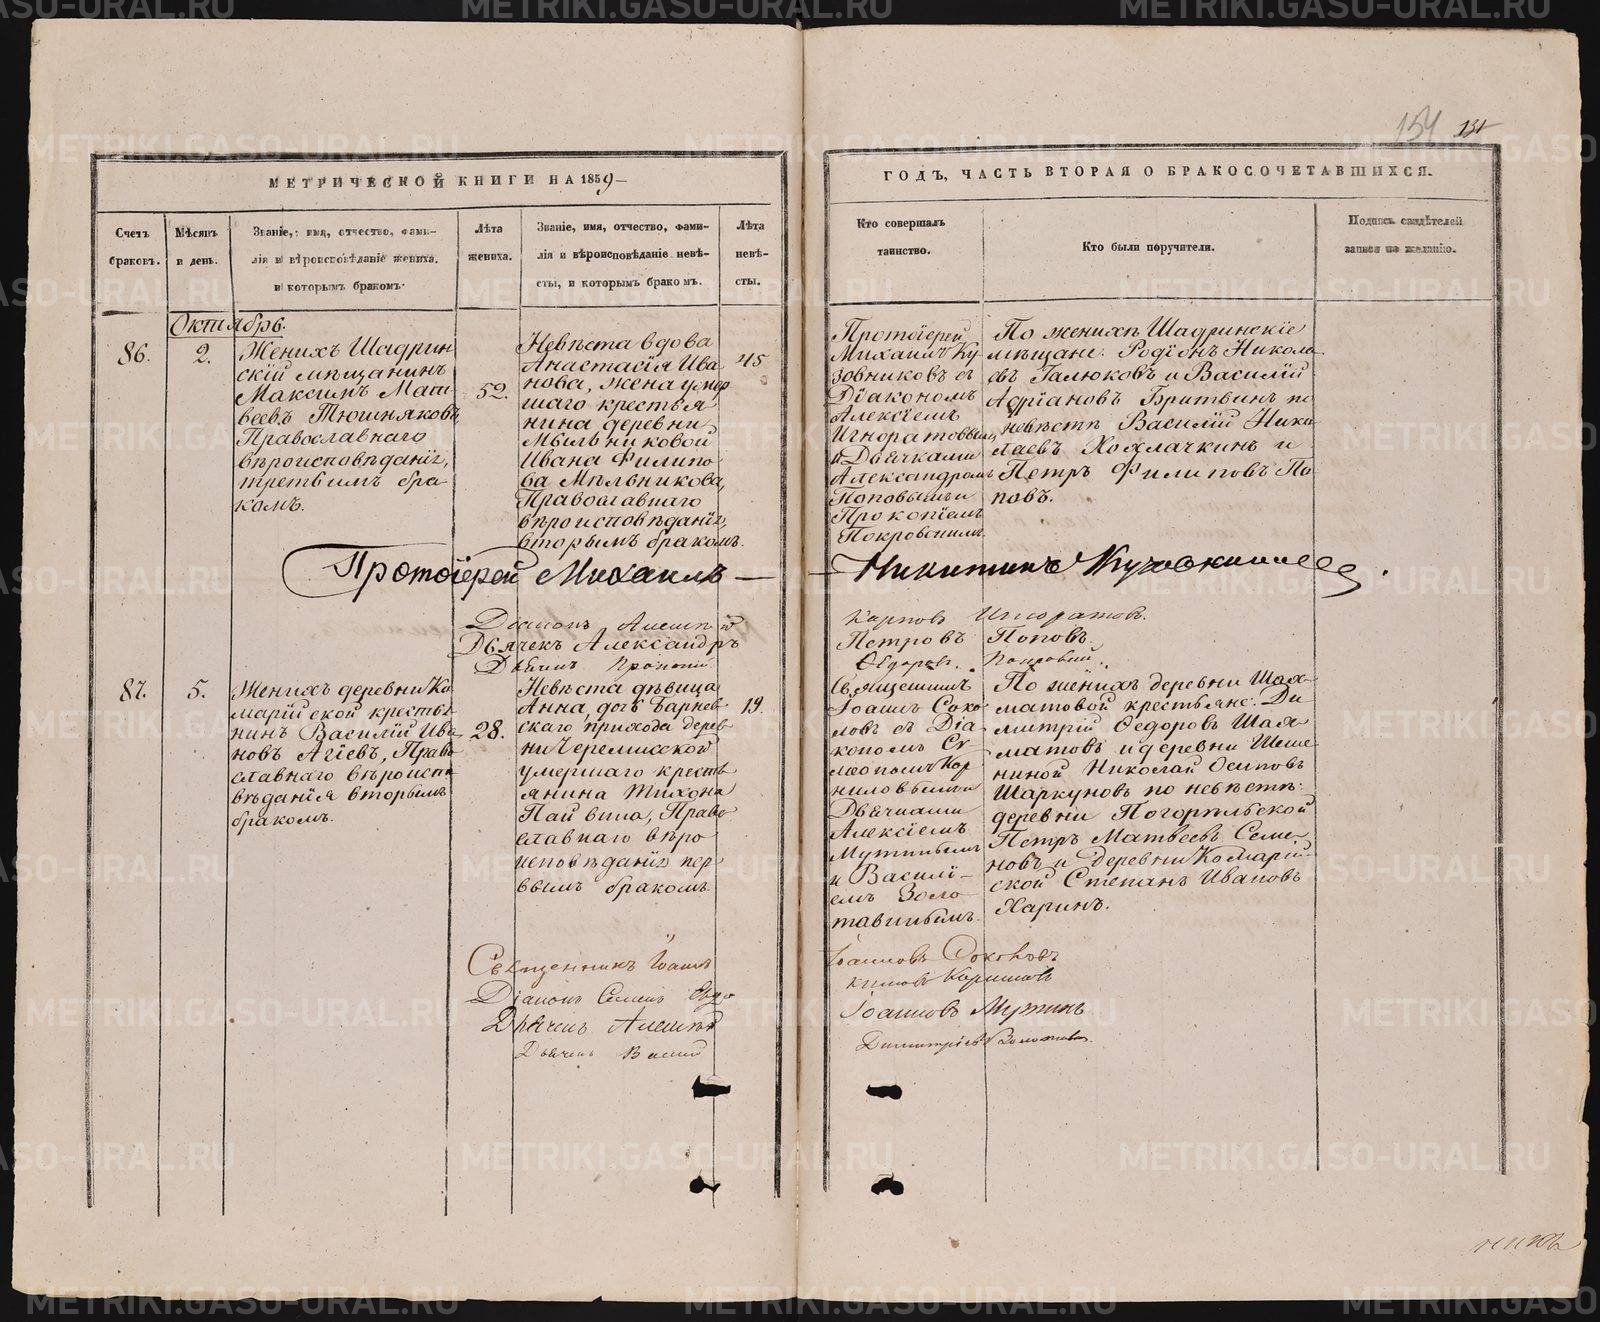 154 131
МЕТРИЧЕСКОЙ КНИГИ НА 1859
ГОДЪ, ЧАСТЬ ВТОРАЯ О БРАКОСОЧЕТАВШИХСЯ.
Счетъ браковъ.
Мѣсяцъ и день.
Званіе, имя, отчество, фами-
лія и вѣроисповѣданіе жениха,
и которымъ бракомъ.
Лѣта жениха.
Званіе, имя, отчество, фами-
лія и вѣроисповѣданіе невѣ-
сты, и которымъ бракомъ.
Лѣта невѣ-
сты.
Кто совершалъ
таинство.
Кто были поручители.
Подпись свидѣтелей
записи по желанію.
Октябрь.
86.
2.
Женихъ Шадрин
скій мѣщанинъ
Максимъ Мат
веевъ Тюшняковъ,
Православнаго
вѣроисповѣданія,
третьимъ бра
комъ.
52.
Невѣста вдова
Анастасія Ива
нова, жена умер
шаго крестья
нина деревни
Мыльниковой
Ивана Филипо
ва Мыльникова,
Православнаго
вѣроисповѣданія,
вторымъ бракомъ.
45
Протоіерей
Михаилъ Ку
зовниковъ съ
Діакономъ
Алексіемъ
Игноратовымъ
и Дьячками
Александромъ
Поповымъ и
Прокопіемъ
Покровскимъ
По женихѣ Шадринскіе
мѣщане: Родіонъ Никола
евъ Галюковъ и Василій
Адріановъ Бритвинъ по
невѣстѣ Василій Нико
лаевъ Хохлачкинъ и
Петръ Филиповъ По
повъ.
Протоіерей Михаилъ
Никитинъ
Діаконъ Алексѣй
Карповъ Игноратовъ.
Дьячекъ Александръ
Петровъ Поповъ.
Прокопій
Ѳедоровъ Покровскій.
87.
5.
Женихъ деревни Ко
марійской кресть
нинъ Василій Ива
новъ Агіевъ, Право
славнаго вѣроиспо
вѣданія вторымъ
бракомъ.
28.
Невѣста дѣвица
Анна, дочь Барнев
скаго прихода дерев
ни Черемисской
умершаго кресть
янина Тихона
Пайвина, Право
славнаго вѣро
исповѣданія пер
вымъ бракомъ.
19.
Священникъ
Іоаннъ Соко
ловъ съ Діа
кономъ Си
меономъ Кор
ниловымъ и
Дьячками
Алексіемъ
Мутинымъ
и Василі
емъ Золо
тавинымъ.
По женихѣ деревни Шах
матовой крестьяне: Ди
митрій Ѳедоровъ Шах
матовъ и деревни Шеше
ниной Николай Осиповъ
Шаркуновъ по невѣстѣ:
деревни Погорѣльской
Петръ Матвеевъ Семе
новъ и деревни Комарій
ской Степанъ Ивановъ
Харинъ.
Священникъ Іоаннъ
Іоанновъ Соколовъ
Діаконъ Симеонъ
Дьячекъ Алексѣй
Іоанновъ Мутинъ
Дьячекъ Василій
METRIKI.GASO-URAL.RU